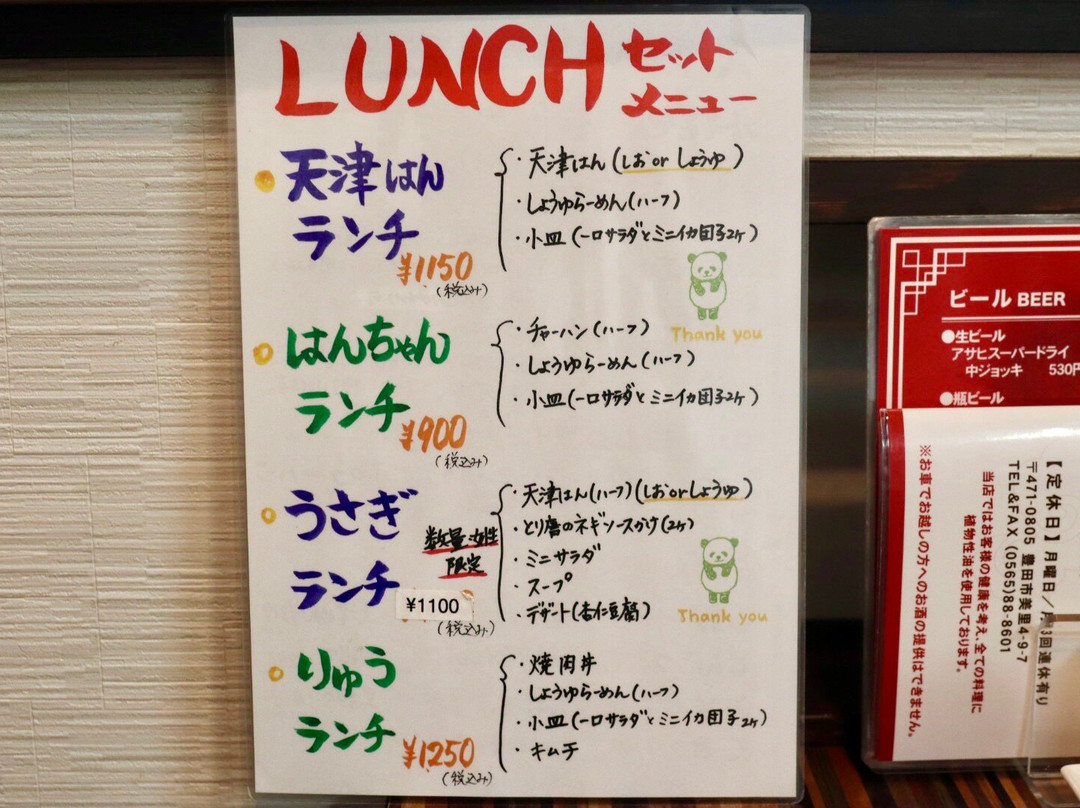 LUNCH セット
メニュー
天津はん
ランチ
¥1150
(税込み)
・天津はん(しお or しょうゆ)
・しょうゆらーめん(ハーフ)
・小皿(一口サラダとミニイカ団子2ヶ)
Thank you
はんちゃん
ランチ
¥900
(税込み)
・チャーハン(ハーフ)
・しょうゆらーめん(ハーフ)
・小皿(一口サラダとミニイカ団子2ヶ)
うさぎ
ランチ
数量・女性
限定
¥1100
(税込み)
・天津はん(ハーフ)(しお or しょうゆ)
・とり唐のネギソースかけ(2ヶ)
・ミニサラダ
・スープ
・デザート(杏仁豆腐)
Thank you
りゅう
ランチ
¥1250
(税込み)
・焼肉丼
・しょうゆらーめん(ハーフ)
・小皿(一口サラダとミニイカ団子2ヶ)
・キムチ
ビール BEER
●生ビール
アサヒスーパードライ
中ジョッキ 530円
●瓶ビール
【定休日】月曜日／
3回連休有り
〒471-0805 豊田市美里4-9-7
TEL&FAX (0565)88-8601
当店ではお客様の健康を考え、全ての料理に
植物性油を使用しております。
※お車でお越しの方へのお酒の提供はできません。